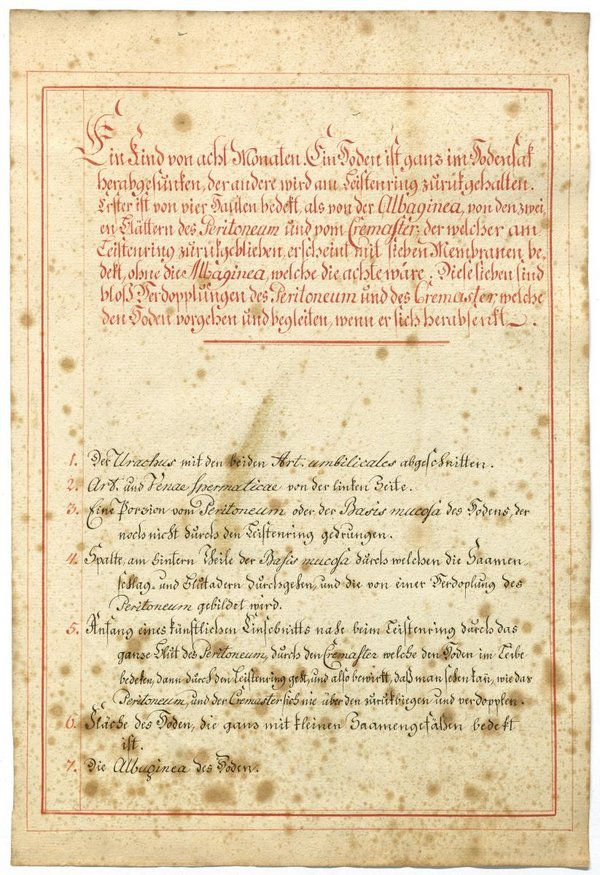 Ein Kind von acht Monaten. Ein Hoden ist ganz im Hodensak
herabgesunken, der andere wird am Leistenring zurükgehalten.
Erster ist von vier Häuten bedekt, als von der Albaginea, von den zwei
en Blättern des Peritoneum und vom Cremaster; der welcher am
Leistenring zurükgeblieben, erscheint mit sieben Membranen be,
dekt, ohne die Albaginea, welche die achte wäre. Diese sieben sind
bloß Verdopplungen des Peritoneum und des Cremaster, welche
den Hoden vorgehen und begleiten, wenn er sich herabsenkt.
1. Der Urachus mit den beiden Art. umbilicales abgeschnitten.
2. Art. und Venae spermaticae von der linken Seite.
3. Eine Porzion vom Peritoneum oder der Basis mucosa des Hodens, der
noch nicht durch den Leistenring gedrungen.
4. Spalte, am hintern Theile der Basis mucosa durch welchen die Saamen,
schlag- und Blutadern durchgehen, und die von einer Verdoplung des
Peritoneum gebildet wird.
5. Anfang eines künstlichen Einschnitts nahe beim Leistenring durch das
ganze Blut des Peritoneum, durch den Cremaster welche den Hoden im Leibe
bedeken, dann durch den Leistenring geht, und also bewirkt, daß man sehen kan, wie das
Peritoneum, und der Cremaster sich nie über den zurükbiegen und verdopplen.
6. Fläche des Hoden, die ganz mit kleinen Saamengefäßen bedekt
ist.
7. Die Albuginea des Hoden.